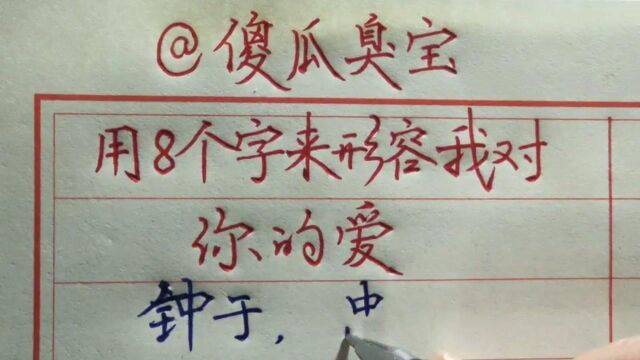 @傻瓜臭宝
用8个字来形容我对
你的爱
钟于，中